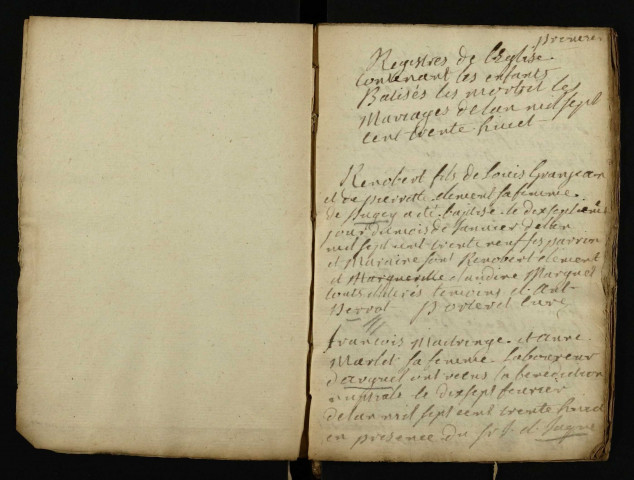 premier
Registres de l'Eglise
contenant les enfants
Batisés les mortut les
Mariages de lan mil sept
cent trente huict
Renobert fils de Louis Granjean
et de pierrotte clement sa femme
de pugey a eté baptisé le dixseptieme
jour du mois de Janvier de lan
mil sept cent trente neuf ses parrein
et Mareine sont Renobert clement
et Marguerite claudine Marguet
touts illiterés temoins
Perrot curé
francois et anne
Marlet sa femme Laboureur
d'arguel ont receus la benediction
nuptiale le dixsept fevrier
de lan mil sept cent trente huict
en presence du Sr